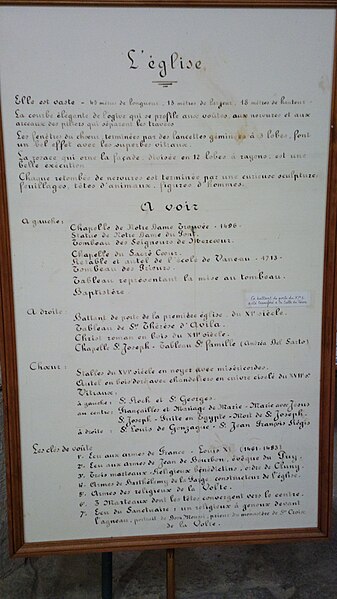 L'église
Elle est vaste - 40 mètres de longueur, 13 mètres de largeur, 18 mètres de hauteur.
La courbe élégante de l'ogive qui se profile aux voûtes, aux nervures et aux
arceaux des piliers qui séparent les travées
Les fenêtres du chœur, terminées par des lancettes géminées à 3 lobes, font
un bel effet avec les superbes vitraux.
La rosace qui orne la façade, divisée en 12 lobes à rayons, est une
belle exécution
Chaque retombée de nervures est terminée par une curieuse sculpture:
feuillages, têtes d'animaux, figures d'hommes.
A voir
A gauche:
Chapelle de Notre Dame Trouvée - 1696.
Statue de Notre Dame du Pont.
Tombeau des Seigneurs de Mercœur.
Chapelle du Sacré Cœur.
Retable et autel de l'école de Vaneau - 1713.
Tombeau des Prieurs.
Tableau représentant la mise au tombeau.
Baptistère
A droite:
Battant de porte de la première église, du XIe siècle.
Tableau de Ste Thérèse d'Avila.
Christ roman en bois du XIIe siècle.
Chapelle St Joseph - Tableau Ste Famille (Andréa Del Sarto)
Chœur:
Stalles du XVe siècle en noyer avec miséricordes.
Autel en bois doré avec chandeliers en cuivre ciselé du XVIIe s.
Vitraux:
à gauche: St Roch et St Georges.
au centre: Fiançailles et Mariage de Marie - Marie avec Jésus
St Joseph - Fuite en Egypte - Mort de St Joseph.
à droite: St Louis de Gonzague - St Jean François Régis
Les clés de voûte
1° Ecu aux armes de France - Louis XI (1461-1483)
2° Ecu aux armes de Jean de Bourbon, évêque du Puy.
3° Trois marteaux - Religieux Bénédictins, ordre de Cluny.
4° Armes de Barthélémy de la Farge, constructeur de l'église.
5° Armes des religieux de la Voûte.
6° 3 Marteaux dont les têtes convergent vers le centre.
7° Ecu du Sanctuaire: un religieux à genoux devant
l'agneau, portrait de Dom prieur du monastère de Ste Croix
de la Volte.